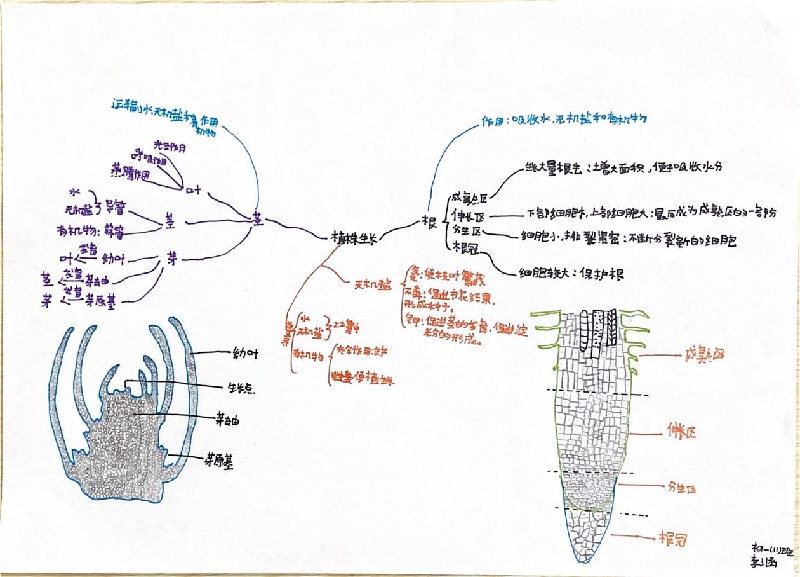 运输水、无机盐和有机物 作用
光合作用
呼吸作用
蒸腾作用
叶
水
无机盐 } 导管
有机物:筛管
茎
叶 ← 发育 幼叶
茎 ← 发育 芽轴
芽 ← 发育 芽原基
芽
茎
植株生长
根
作用:吸收水、无机盐和有机物
成熟区
伸长区
分生区
根冠
大量根毛:增大面积,便于吸收水分
下部细胞小,上部细胞大:最后成为成熟区的一部分
细胞小,排列紧密:不断分裂新的细胞
细胞较大:保护根
无机盐
氮:促枝叶繁茂
磷:促进开花结果,
钾:促进茎的发育,促进淀
粉的形成。
水
无机盐
有机物
光合作用
幼叶
生长点
芽轴
芽原基
成熟区
伸长区
分生区
根冠